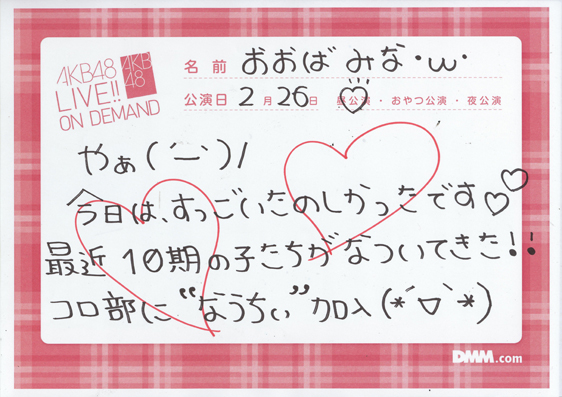 AKB48
LIVE!!
ON DEMAND
AKB
48
名前 おおば みな・ω・
公演日 2月26日 昼公演・おやつ公演・夜公演
やぁ(´ー`)/
今日は、すっごいたのしかったです♡♡
最近 10期の子たちがなついてきた!!
コロ部に"なうちぃ"加入(*´▽`*)
DMM.com